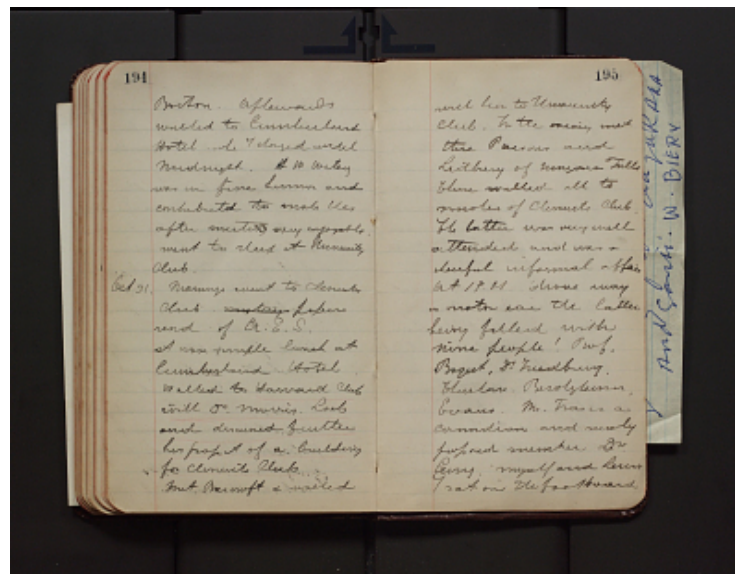 194
Boston. Afterwards
walked to Cumberland
Hotel where I stayed until
Midnight. H W Wiley
was in fine humor and
contributed to make this
after meeting very enjoyable.
went to sleep at University
Club.
Oct 21. Morning went to Chemists
Club papers
read of A. E. S.
at noon simple lunch at
Cumberland Hotel.
Walked to Harvard Club
with Dr Morris Loeb
and discussed further
his project of a building
for Chemists Club.
Met Bancroft & walked
195
with him to University
Club. In the evening met
there Parsons and
of Niagara Falls
Then walked all to
smoker of Chemists Club.
The latter was very well
attended and was a
cheerful informal affair
At 12 drove away
in motor car the latter
being filled with
nine people! Prof.
Bogert, Dr
Evans. Mr. Fraser a
canadian and newly
proposed member Dr
myself and
sat on the footboard
W. BIERY